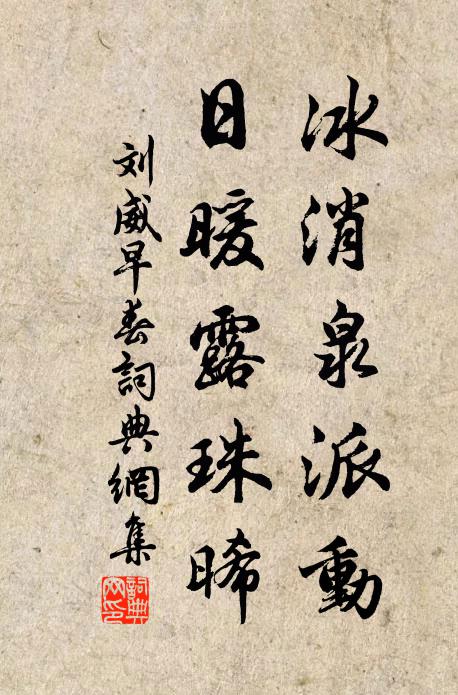 冰消泉派動
日暖露珠晞
刘威早春詞典網集
詞典网印